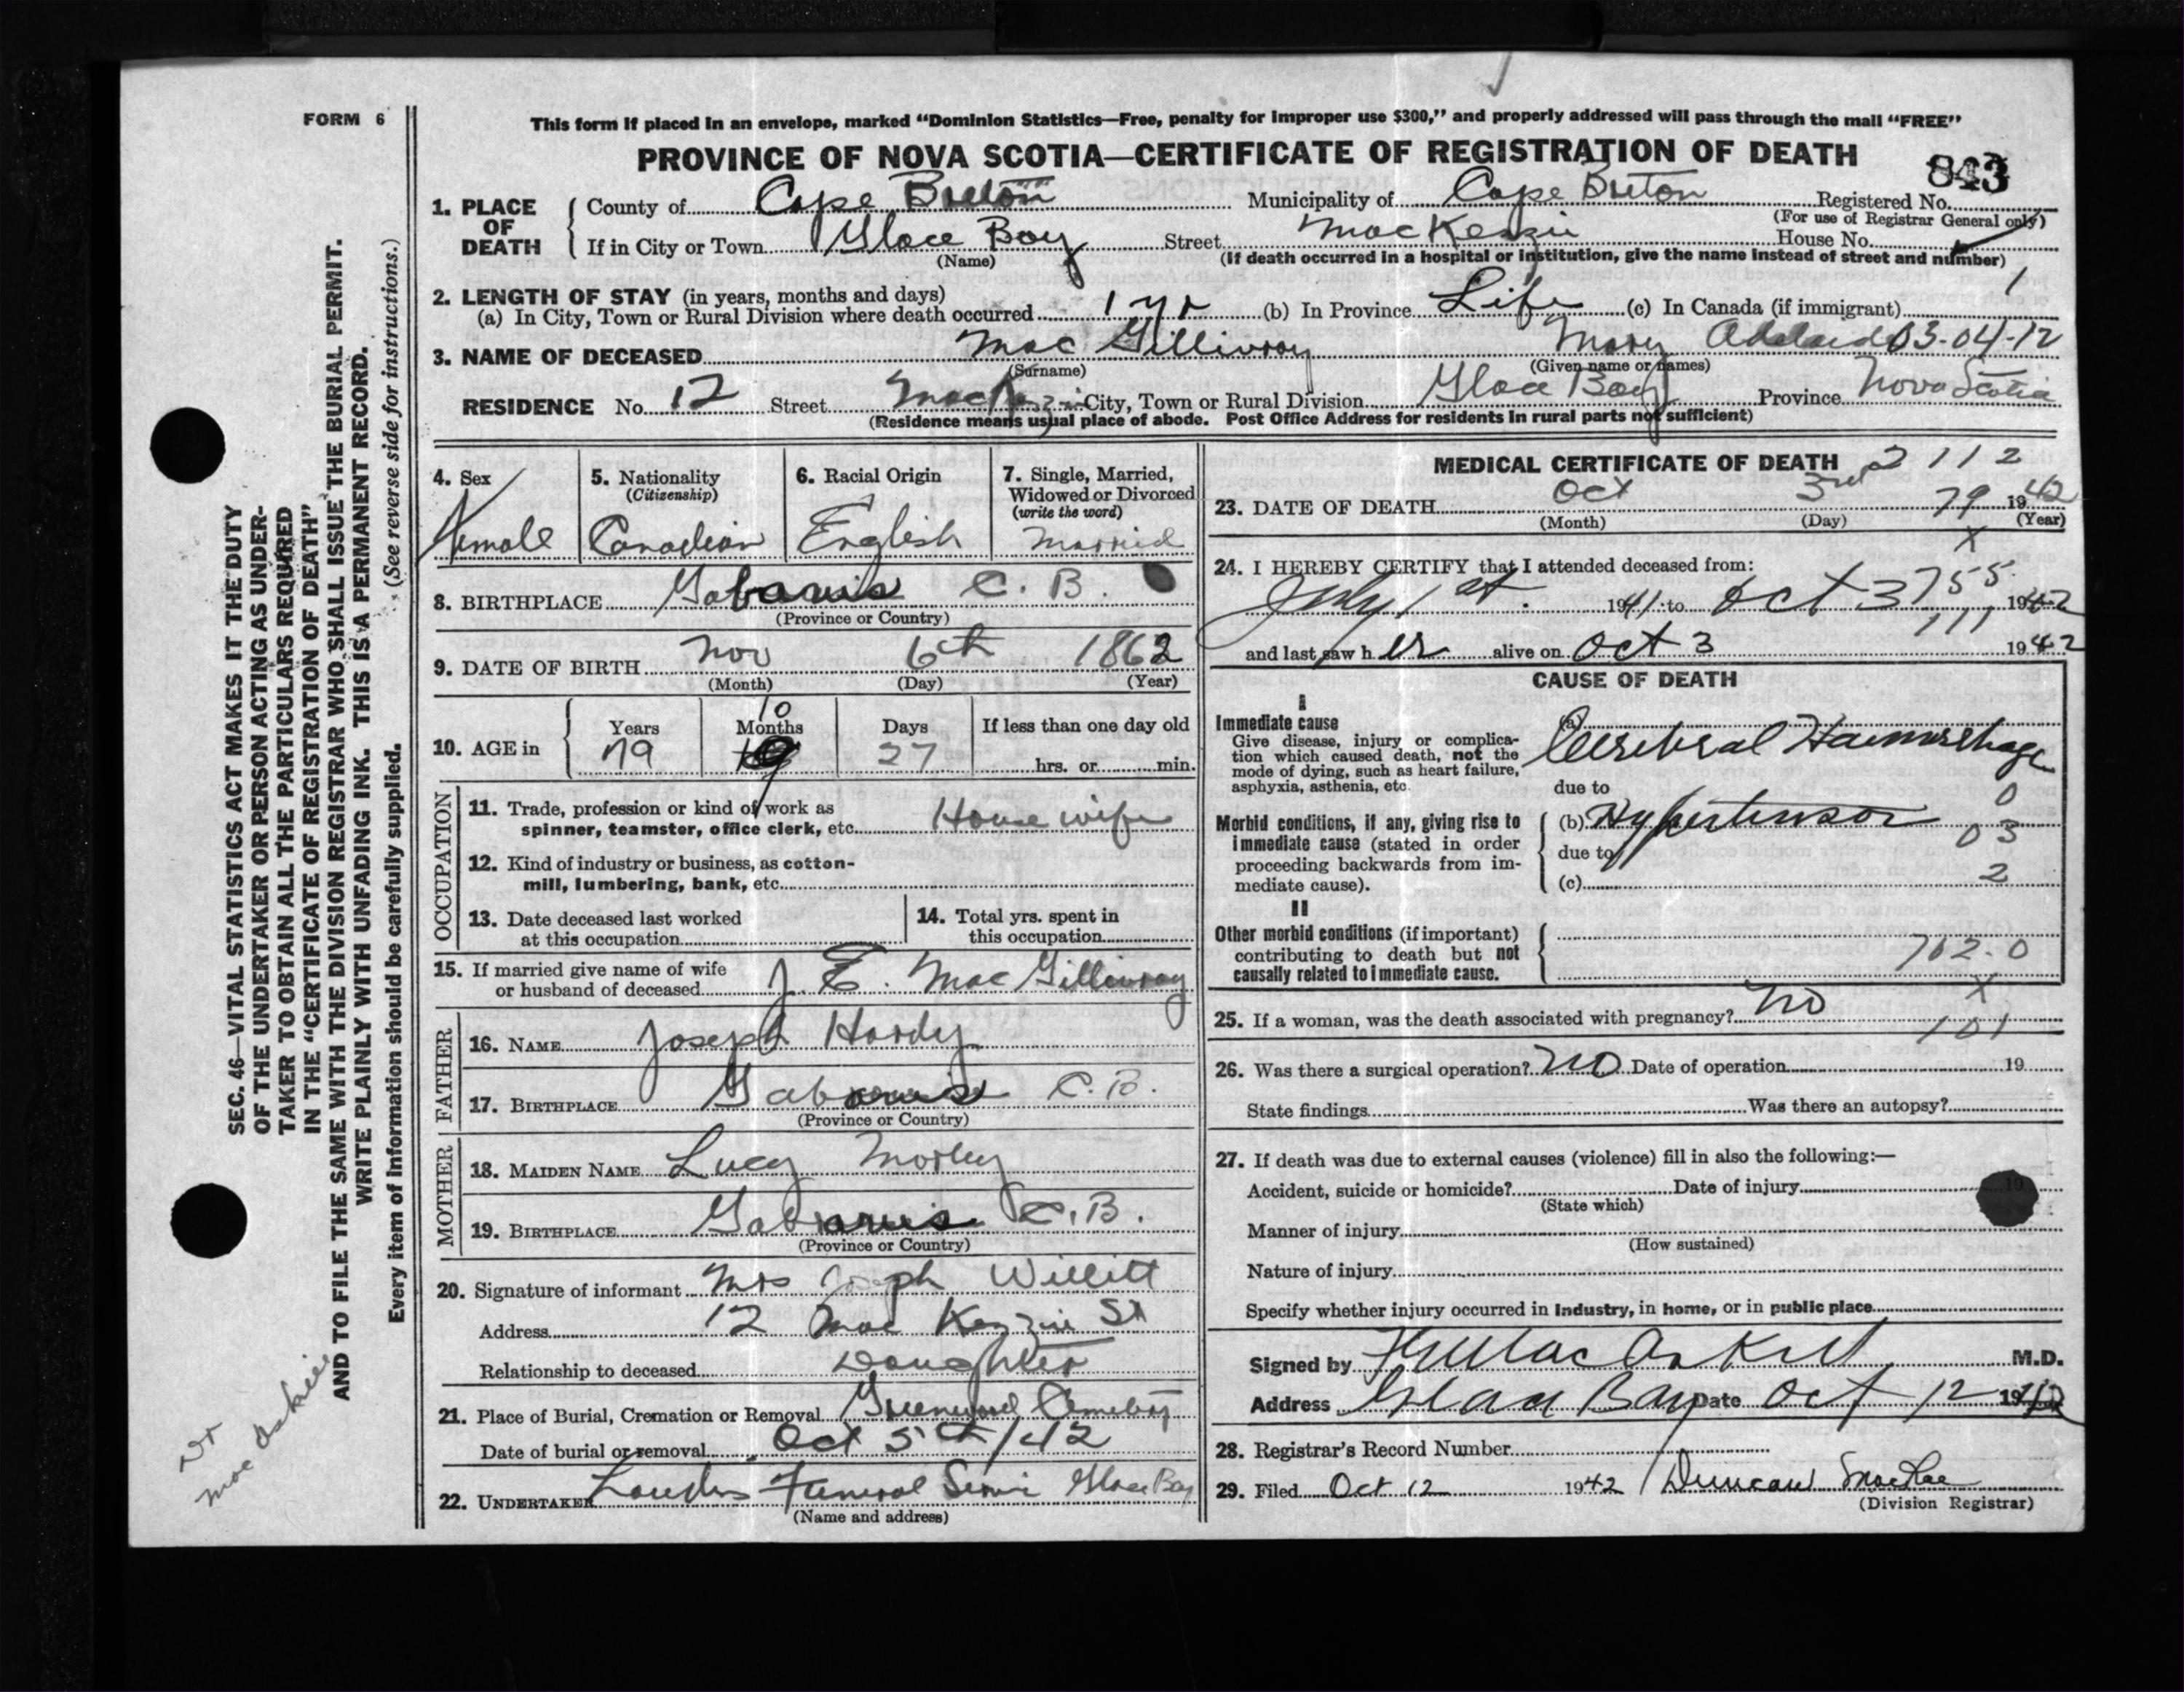 FORM 6
This form if placed in an envelope, marked "Dominion Statistics—Free, penalty for improper use $300," and properly addressed will pass through the mail "FREE"
PROVINCE OF NOVA SCOTIA—CERTIFICATE OF REGISTRATION OF DEATH
843
1. PLACE OF DEATH
County of Cape Breton Municipality of Cape Breton Registered No.
(For use of Registrar General only)
If in City or Town Glace Bay Street MacKenzie House No.
(Name) (If death occurred in a hospital or institution, give the name instead of street and number)
2. LENGTH OF STAY (in years, months and days) 1
(a) In City, Town or Rural Division where death occurred 1 yr (b) In Province Life (c) In Canada (if immigrant)
3. NAME OF DECEASED Mac Gillivray Mary Adelaide 03-04-12
(Surname) (Given name or names)
RESIDENCE No. 12 Street MacKenzie City, Town or Rural Division Glace Bay Province Nova Scotia
(Residence means usual place of abode. Post Office Address for residents in rural parts not sufficient)
4. Sex
Female
5. Nationality
(Citizenship)
Canadian
6. Racial Origin
English
7. Single, Married,
Widowed or Divorced
(write the word)
Married
8. BIRTHPLACE Gabarus C. B.
(Province or Country)
9. DATE OF BIRTH Nov 6th 1862
(Month) (Day) (Year)
10. AGE in
Years Months Days If less than one day old
79 10 27 hrs. or min.
OCCUPATION
11. Trade, profession or kind of work as
spinner, teamster, office clerk, etc. House wife
12. Kind of industry or business, as cotton-
mill, lumbering, bank, etc.
13. Date deceased last worked
at this occupation
14. Total yrs. spent in
this occupation
15. If married give name of wife
or husband of deceased J. E. Mac Gillivray
FATHER
16. NAME Joseph Hardy
17. BIRTHPLACE Gabarus C.B.
(Province or Country)
MOTHER
18. MAIDEN NAME Lucy Morley
19. BIRTHPLACE Gabarus C.B.
(Province or Country)
20. Signature of informant Mrs Joseph Willitt
Address 12 Mac Kenzie St
Relationship to deceased Daughter
21. Place of Burial, Cremation or Removal Greenwood Cemetery
Date of burial or removal Oct 5th/42
22. UNDERTAKER Funeral Glace Bay
(Name and address)
MEDICAL CERTIFICATE OF DEATH 2112
23. DATE OF DEATH Oct 3rd 79 1942
(Month) (Day) (Year)
x
24. I HEREBY CERTIFY that I attended deceased from:
July 1st. 1941 to Oct 3 755 1942
111
and last saw her alive on Oct 3 1942
CAUSE OF DEATH
I
Immediate cause
Give disease, injury or complica-
tion which caused death, not the
mode of dying, such as heart failure,
asphyxia, asthenia, etc.
(a) Cerebral Haemorrhage
due to 0
Morbid conditions, if any, giving rise to
immediate cause (stated in order
proceeding backwards from im-
mediate cause).
(b) Hypertension 03
due to
(c) 2
II
Other morbid conditions (if important)
contributing to death but not
causally related to immediate cause.
702.0
x
25. If a woman, was the death associated with pregnancy? No
101
26. Was there a surgical operation? NO Date of operation 19
State findings Was there an autopsy?
27. If death was due to external causes (violence) fill in also the following:—
Accident, suicide or homicide? Date of injury 19
(State which)
Manner of injury
(How sustained)
Nature of injury
Specify whether injury occurred in industry, in home, or in public place
Signed by MacAskill M.D.
Address Glace Bay Date Oct 12 1942
28. Registrar's Record Number
29. Filed Oct 12 1942 Duncan MacRae
(Division Registrar)
SEC. 46—VITAL STATISTICS ACT MAKES IT THE DUTY
OF THE UNDERTAKER OR PERSON ACTING AS UNDER-
TAKER TO OBTAIN ALL THE PARTICULARS REQUIRED
IN THE "CERTIFICATE OF REGISTRATION OF DEATH"
AND TO FILE THE SAME WITH THE DIVISION REGISTRAR WHO SHALL ISSUE THE BURIAL PERMIT.
WRITE PLAINLY WITH UNFADING INK. THIS IS A PERMANENT RECORD.
Every item of information should be carefully supplied. (See reverse side for instructions.)
Dr
Mac Askill